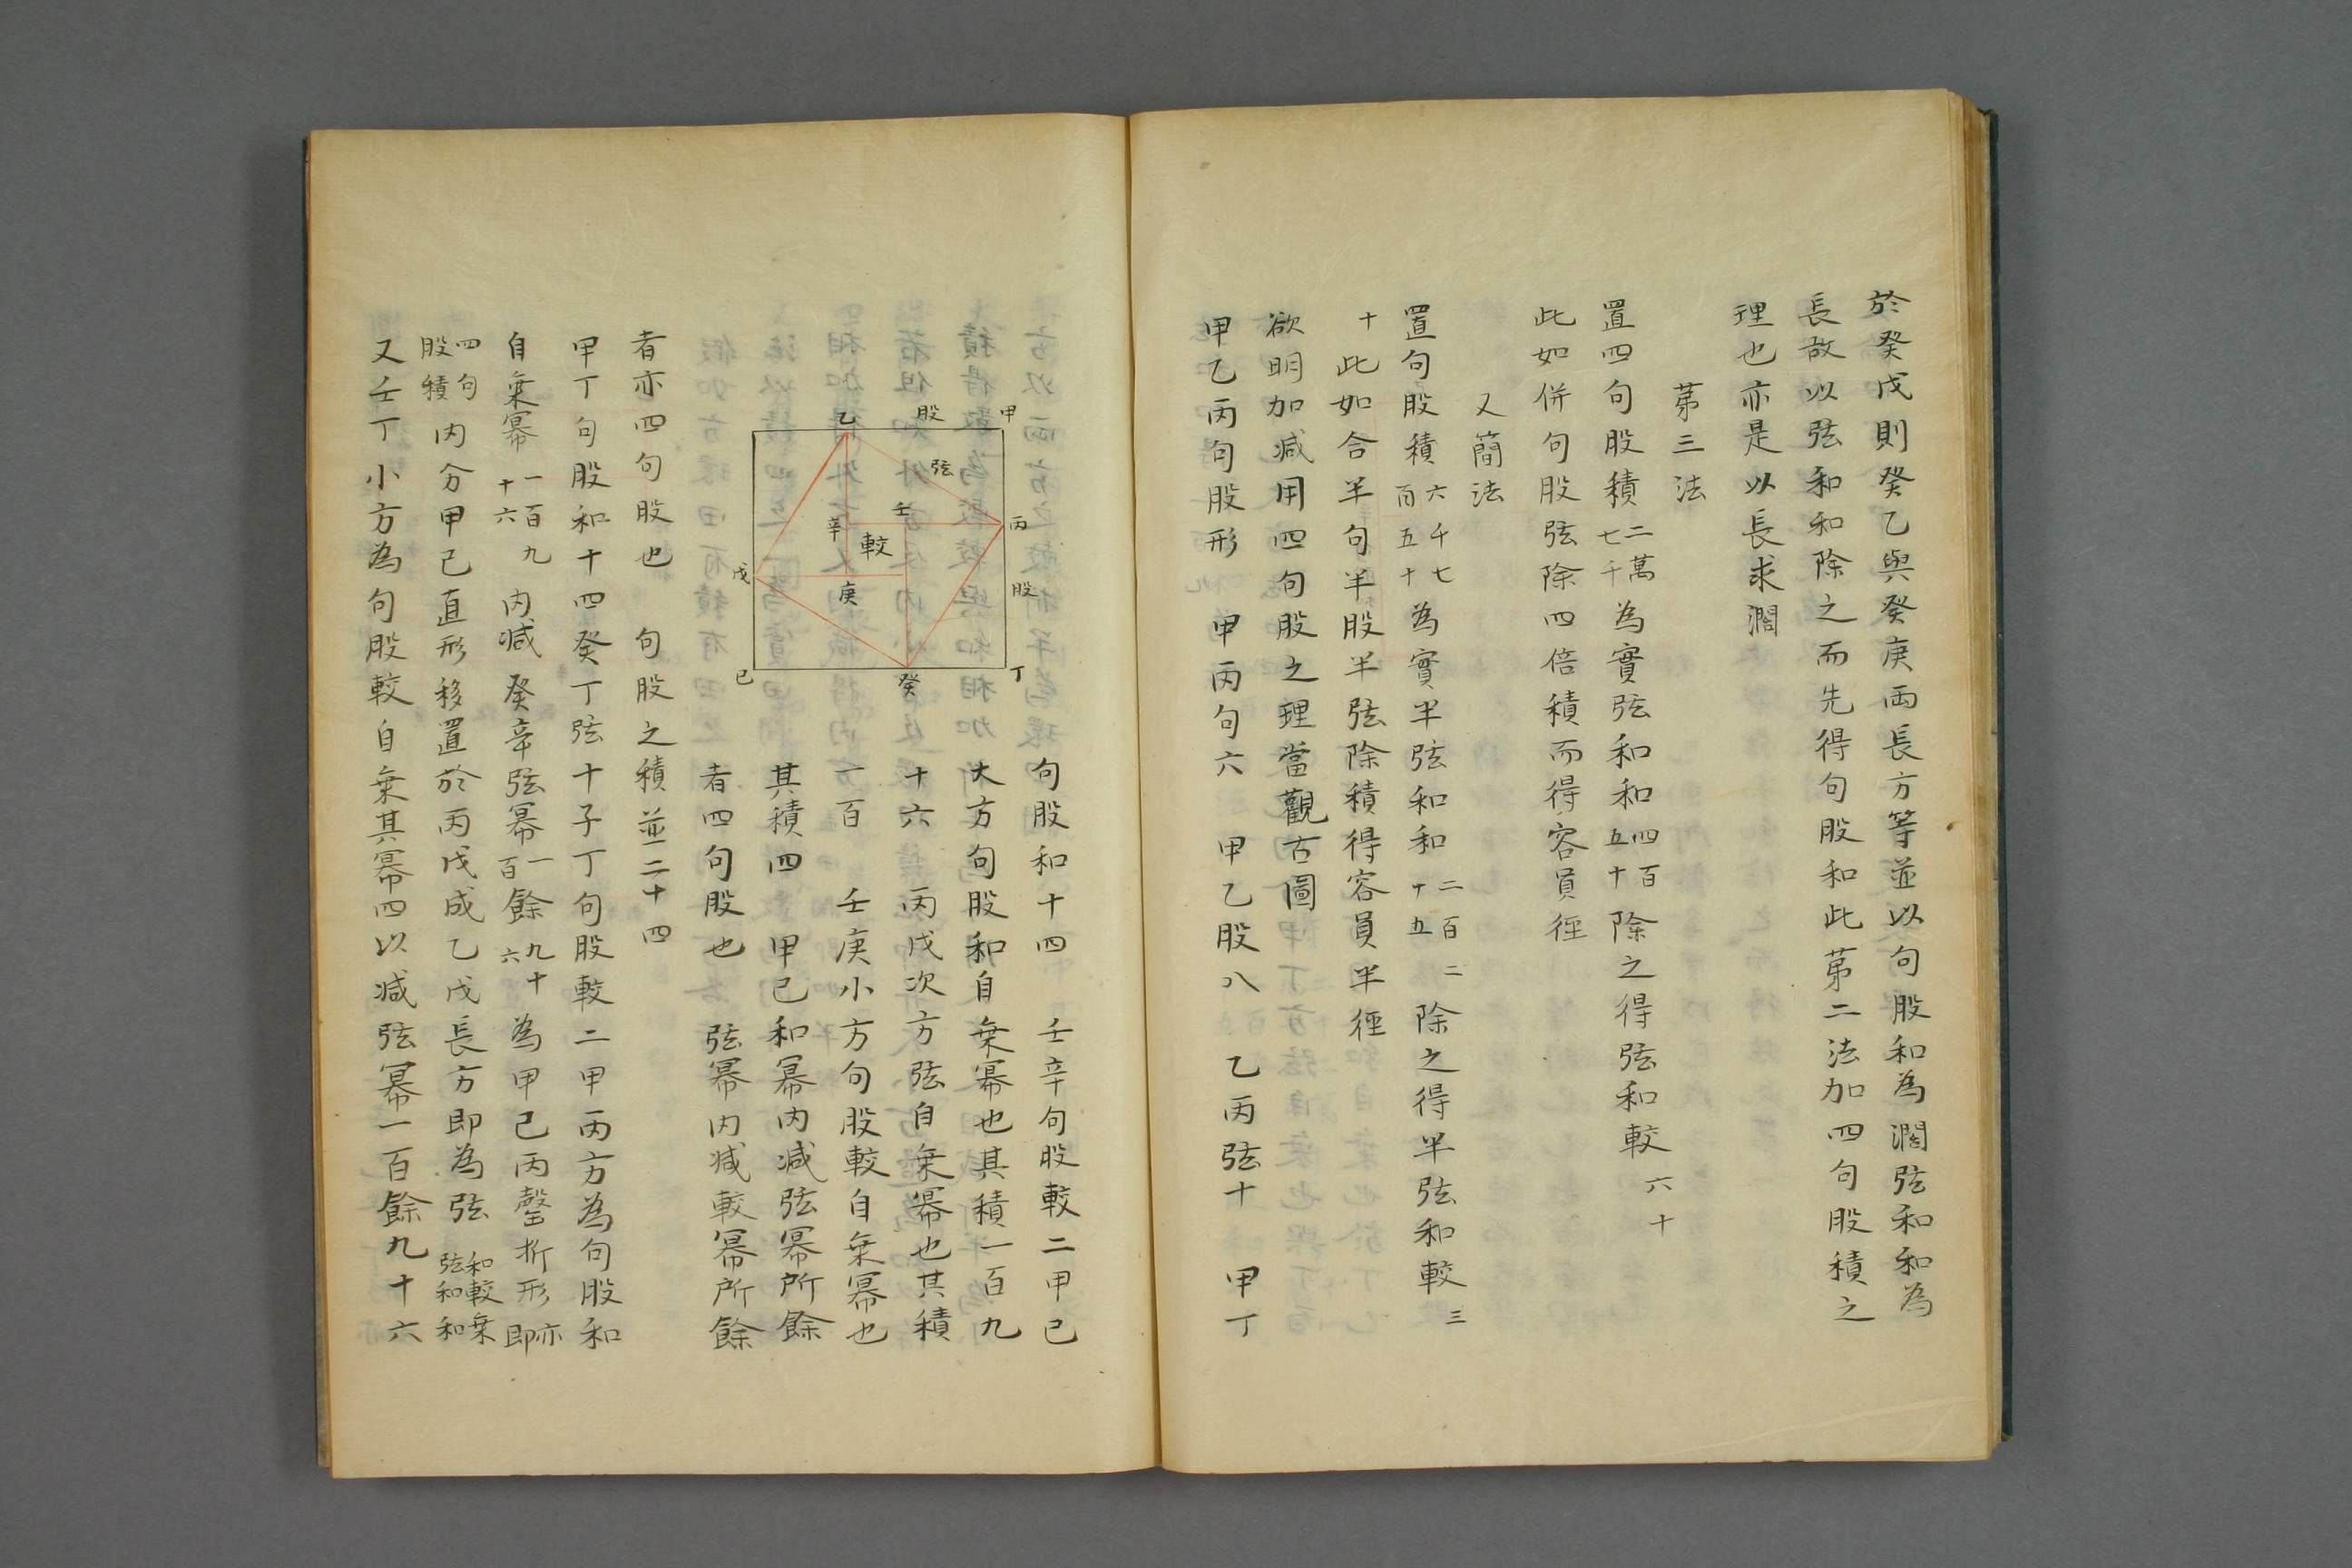 於癸戊則癸乙與癸庚両長方等並以句股和為濶弦和和為
長故以弦和和除之而先得句股和此苐二法加四句股積之
理也亦是以長求濶
苐三法
置四句股積二萬七千為實弦和和四百五十除之得弦和較六十
此如併句股弦除四倍積而得容員徑
又簡法
置句股積六千七百五十為實半弦和和二百二十五除之得半弦和較三
十此如合半句半股半弦除積得容員半徑
欲明加减用四句股之理當觀古圖
甲乙丙句股形 甲丙句六 甲乙股八 乙丙弦十 甲丁
句股和十四 壬辛句股較二甲己
大方句股和自乗冪也其積一百九
十六 丙戊次方弦自乗冪也其積
一百 壬庚小方句股較自乗冪也
其積四 甲己和冪内减弦冪所餘
者四句股也 弦冪内减較冪所餘
甲
股
乙
弦
丙
壬
辛
較
股
戊
庚
己
癸
丁
者亦四句股也 句股之積並二十四
甲丁句股和十四癸丁弦十子丁句股較二甲丙方為句股和
自乗冪一百九十六内减癸辛弦冪一百餘九十六為甲己丙罄折形亦即
四句股積内分甲己直形移置於丙戊成乙戊長方即為弦和較乗弦和和
又壬丁小方為句股較自乗其冪四以减弦冪一百餘九十六